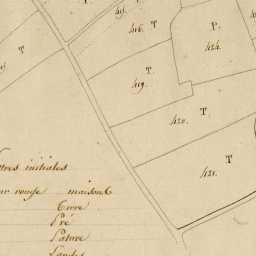 T
415.
T
416.
P.
424.
T
T
419.
T
420.
T
421.
initiales
rouge maison
Terre
Pré
Pature
Landes